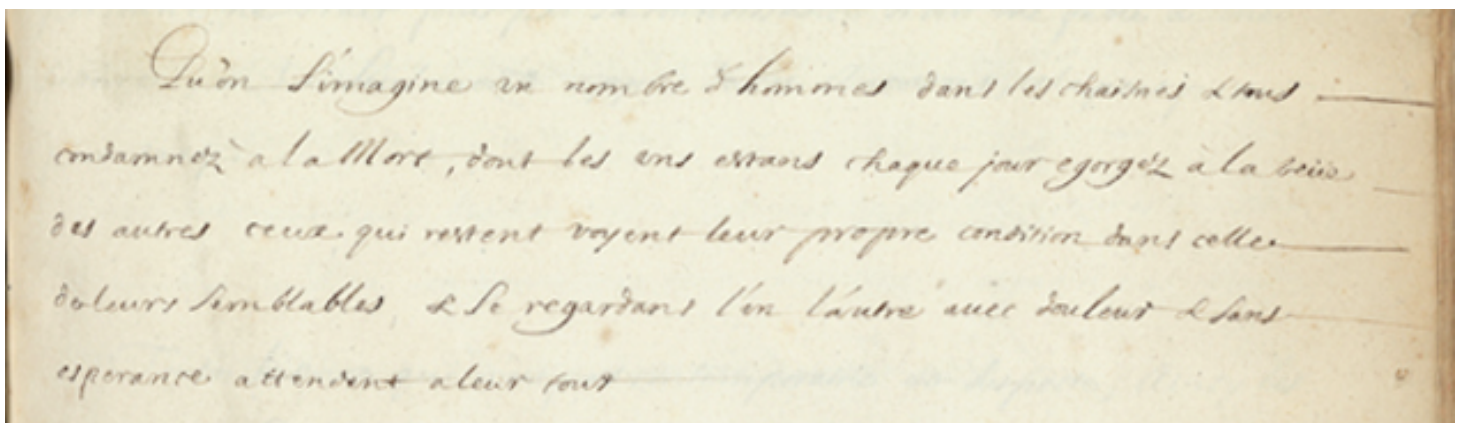 Qu'on s'imagine un nombre d'hommes dans les chaisnes & tous
condamnez à la Mort, dont les uns estans chaque jour egorgez à la veüe
des autres ceux qui restent voyent leur propre condition dans celle
de leurs semblables & se regardans l'un l'autre avec douleur & sans
esperance attendent a leur tour